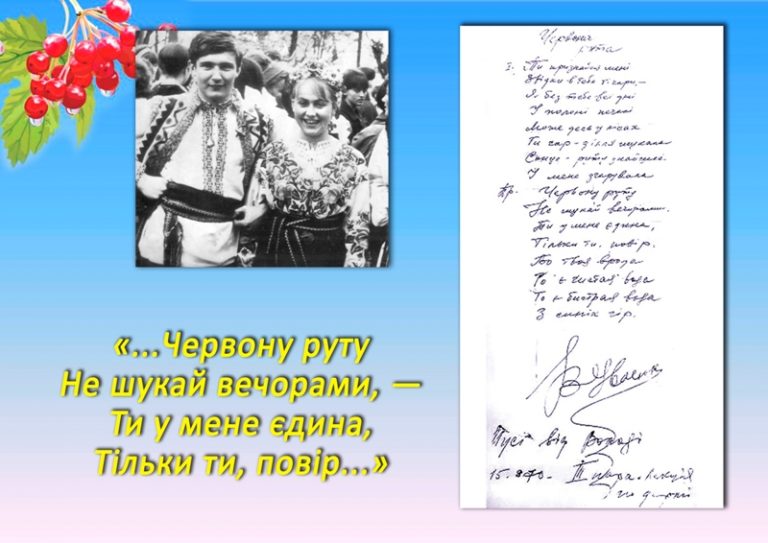 «...Червону руту
Не шукай вечорами, —
Ти у мене єдина,
Тільки ти, повір...»
Червона
рута
I. Ти признайся мені
Звідки в тебе ті чари,—
Я без тебе всі дні
У полоні печалі
Може десь у лісах
Ти чар-зілля шукала
Сонце-руту знайшла
І мене зчарувала
Пр. Червону руту
Не шукай вечорами.
Ти у мене єдина,
Тільки ти, повір.
Бо твоя врода
То є чистая вода
То є бистрая вода
З синіх гір.
від Володі
15.
III пара